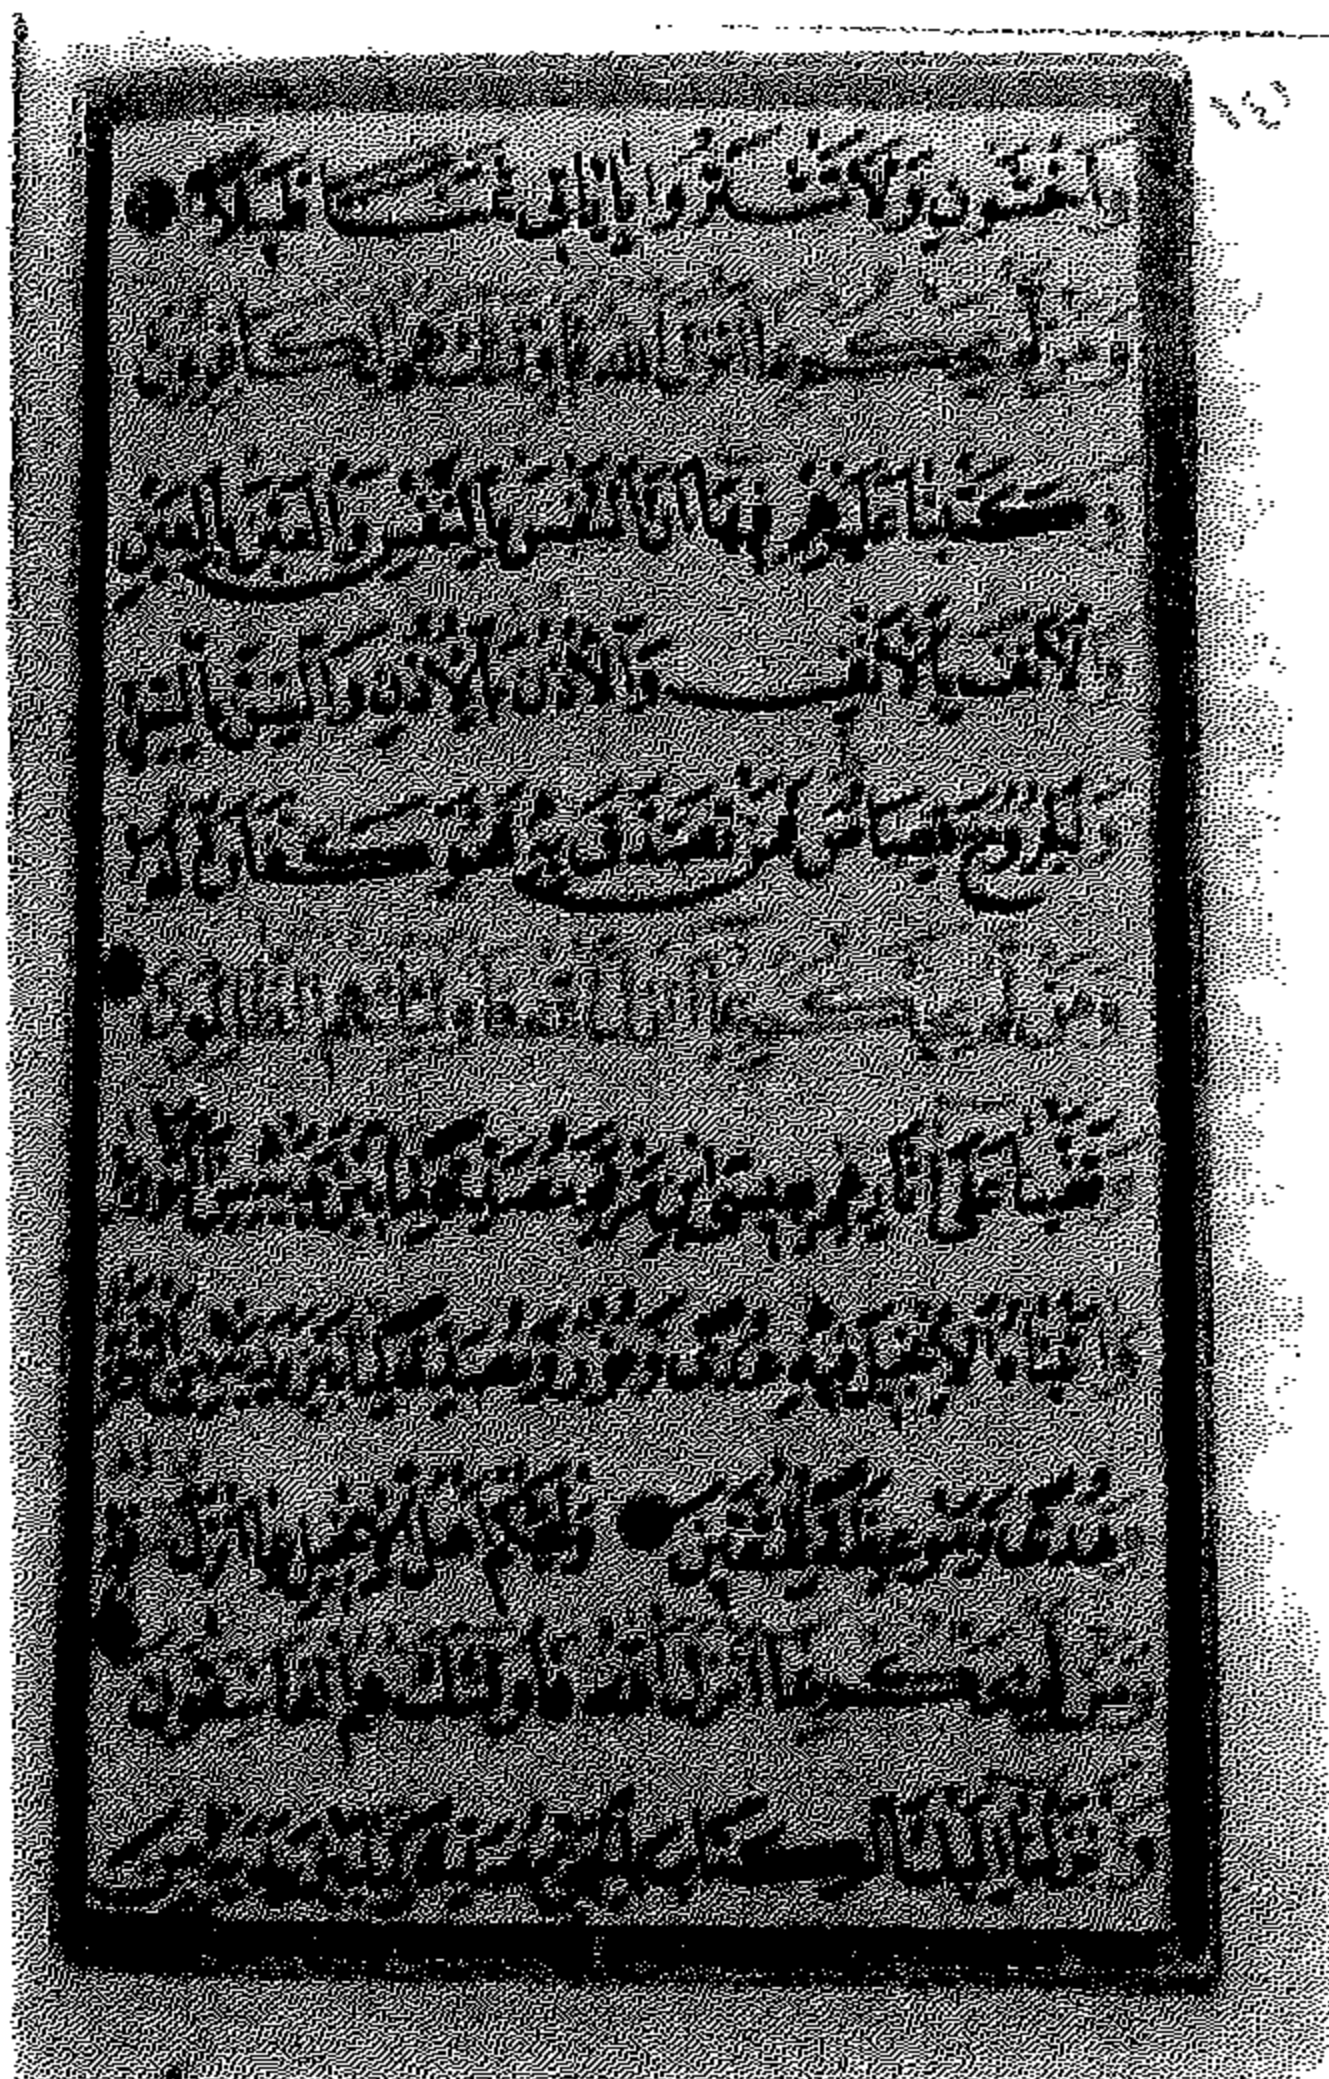 وَاخْشَوْنِ وَلَا تَشْتَرُوا بِآيَاتِي ثَمَنًا قَلِيلًا
وَمَن لَّمْ يَحْكُم بِمَا أَنزَلَ اللَّهُ فَأُولَٰئِكَ هُمُ الْكَافِرُونَ
وَكَتَبْنَا عَلَيْهِمْ فِيهَا أَنَّ النَّفْسَ بِالنَّفْسِ وَالْعَيْنَ بِالْعَيْنِ
وَالْأَنفَ بِالْأَنفِ وَالْأُذُنَ بِالْأُذُنِ وَالسِّنَّ بِالسِّنِّ
وَالْجُرُوحَ قِصَاصٌ فَمَن تَصَدَّقَ بِهِ فَهُوَ كَفَّارَةٌ لَّهُ
وَمَن لَّمْ يَحْكُم بِمَا أَنزَلَ اللَّهُ فَأُولَٰئِكَ هُمُ الظَّالِمُونَ
وَقَفَّيْنَا عَلَىٰ آثَارِهِم بِعِيسَى ابْنِ مَرْيَمَ مُصَدِّقًا لِّمَا بَيْنَ يَدَيْهِ مِنَ التَّوْرَاةِ
وَآتَيْنَاهُ الْإِنجِيلَ فِيهِ هُدًى وَنُورٌ وَمُصَدِّقًا لِّمَا بَيْنَ يَدَيْهِ مِنَ التَّوْرَاةِ
وَهُدًى وَمَوْعِظَةً لِّلْمُتَّقِينَ وَلْيَحْكُمْ أَهْلُ الْإِنجِيلِ بِمَا أَنزَلَ
وَمَن لَّمْ يَحْكُم بِمَا أَنزَلَ اللَّهُ فَأُولَٰئِكَ هُمُ الْفَاسِقُونَ
وَأَنزَلْنَا إِلَيْكَ الْكِتَابَ بِالْحَقِّ مُصَدِّقًا لِّمَا بَيْنَ